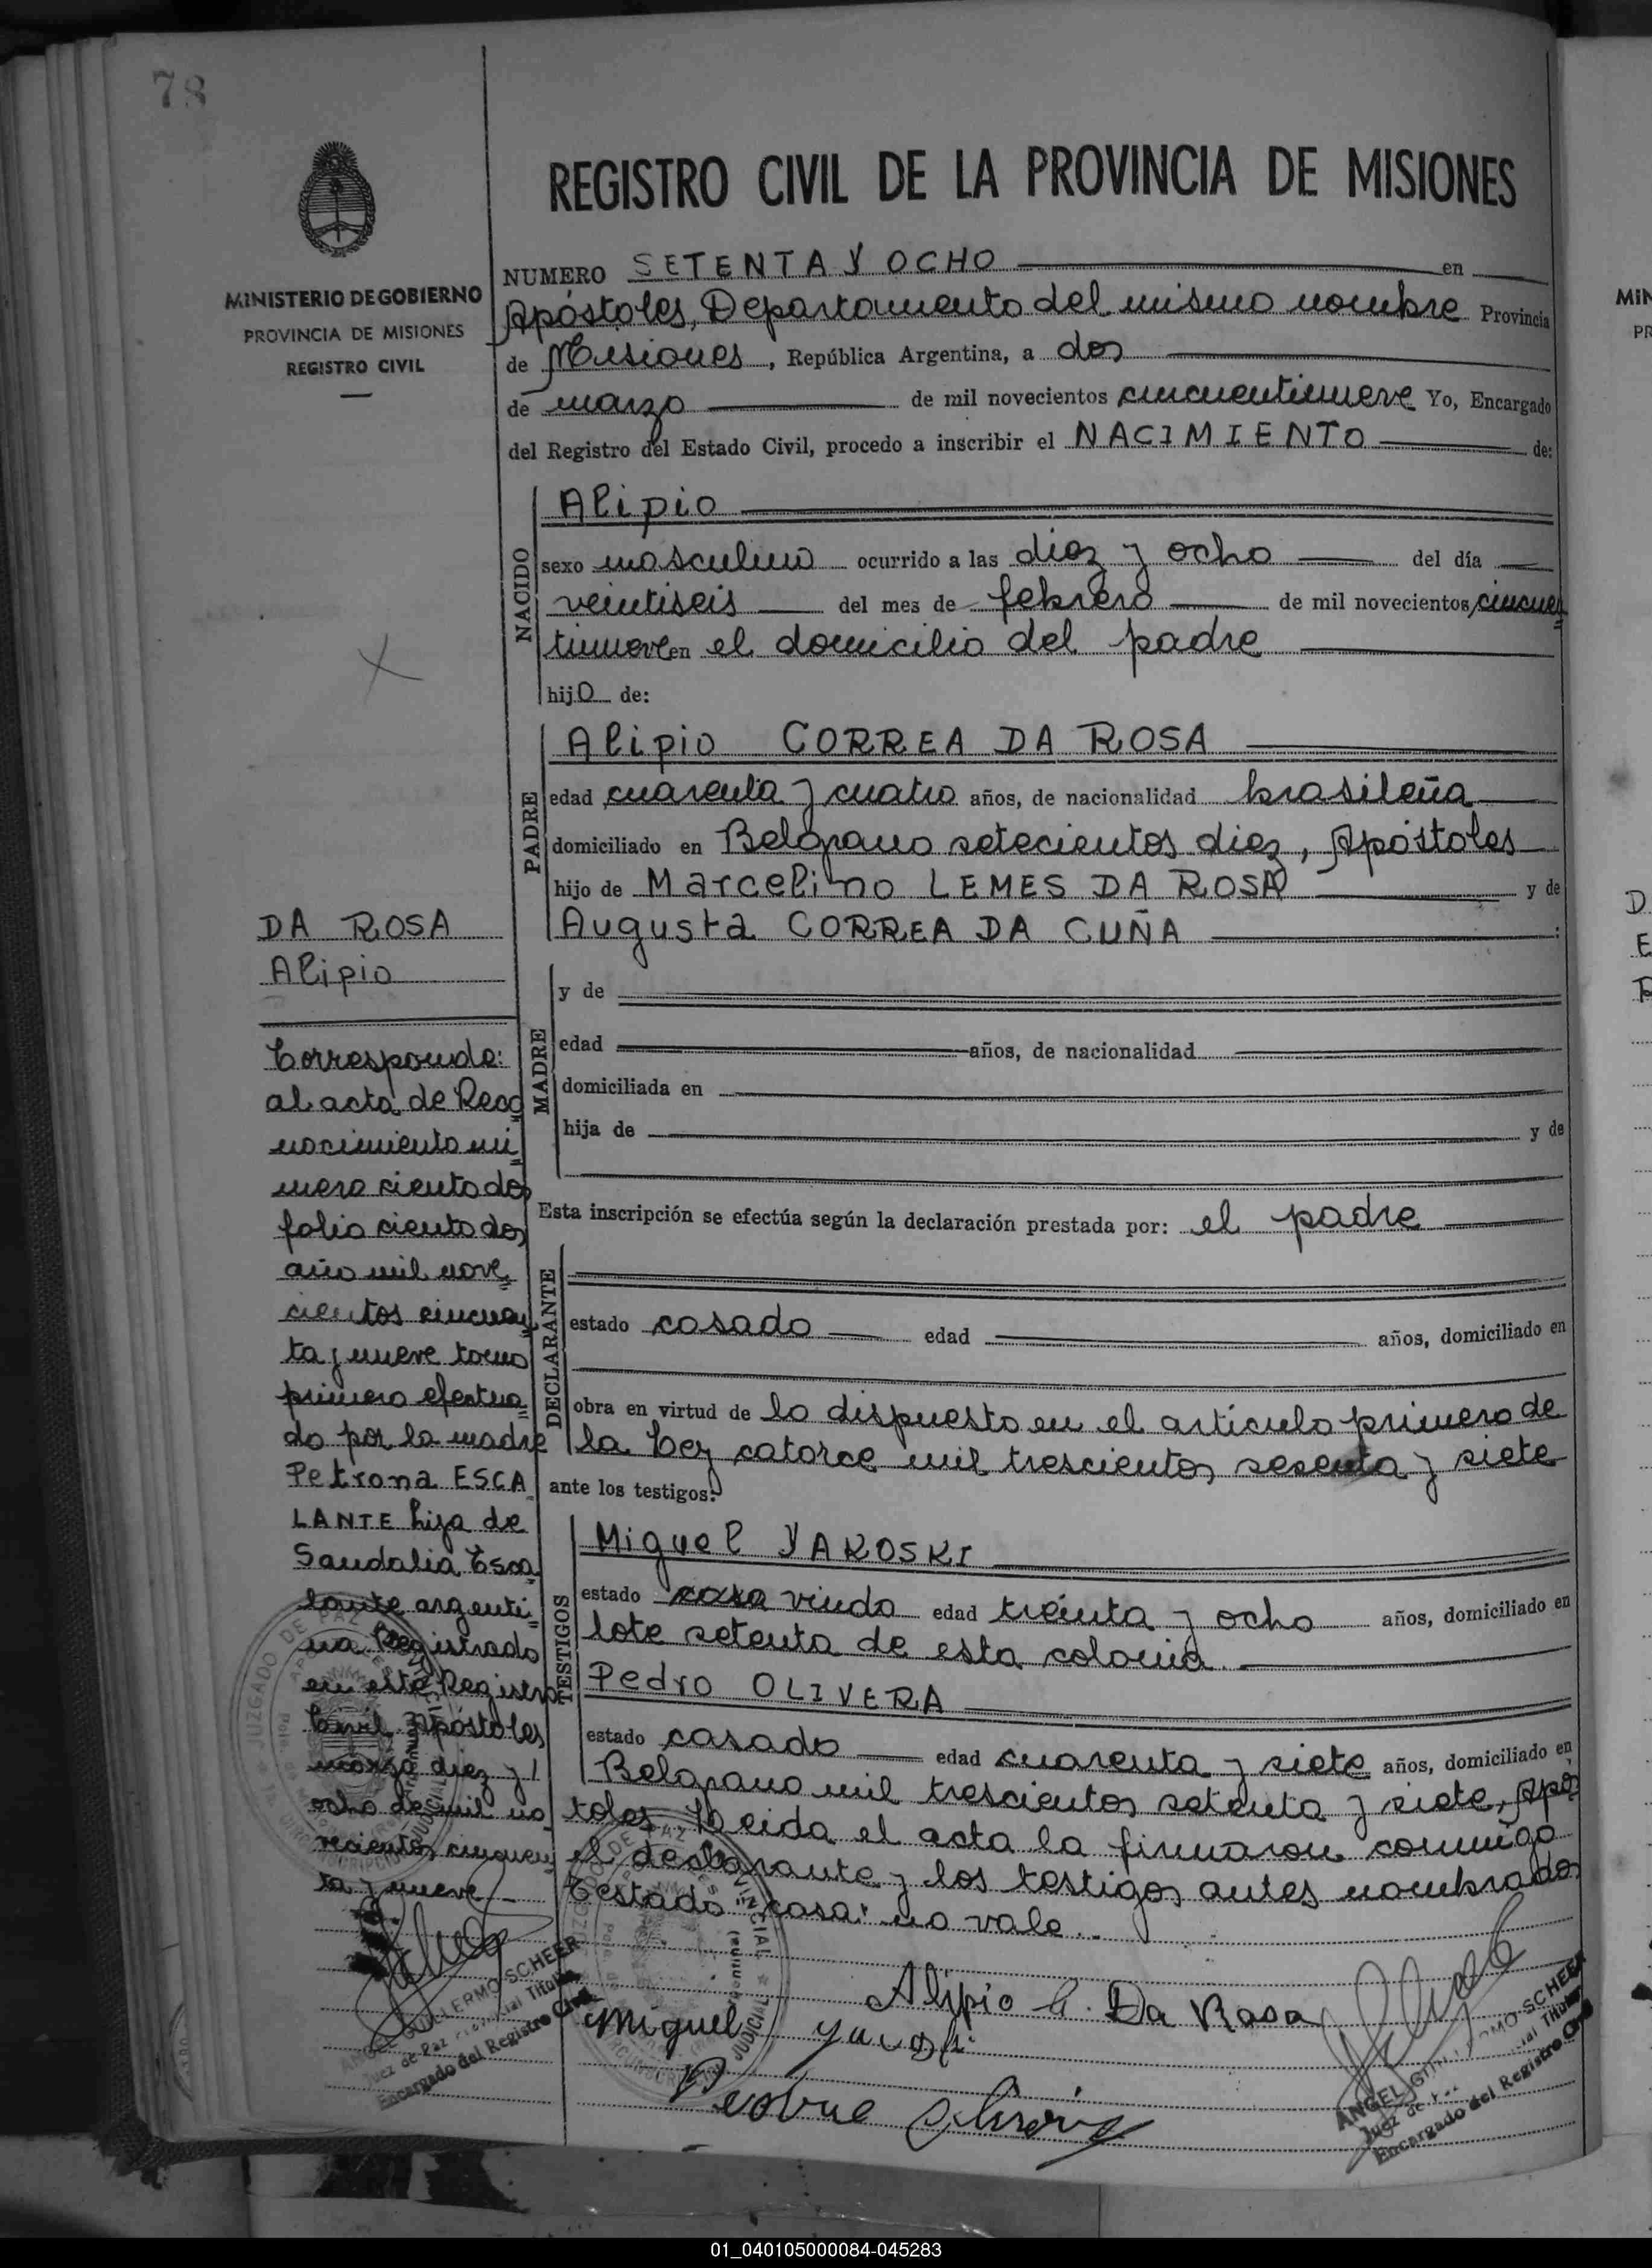 78
MINISTERIO DE GOBIERNO
PROVINCIA DE MISIONES
REGISTRO CIVIL
REGISTRO CIVIL DE LA PROVINCIA DE MISIONES
NUMERO SETENTA Y OCHO en
Apóstoles, Departamento del mismo nombre Provincia
de Misiones, República Argentina, a dos
de marzo de mil novecientos cincuentinueve Yo, Encargado
del Registro del Estado Civil, procedo a inscribir el NACIMIENTO de:
NACIDO
Alipio
sexo masculino ocurrido a las diez y ocho del día
veintiseis del mes de febrero de mil novecientos cincuen
tinueve en el domicilio del padre
hijo de:
PADRE
Alipio CORREA DA ROSA
edad cuarenta y cuatro años, de nacionalidad brasileña
domiciliado en Belgrano setecientos diez, Apóstoles
hijo de Marcelino LEMES DA ROSA y de
Augusta CORREA DA CUÑA :
MADRE
y de
edad años, de nacionalidad
domiciliada en
hija de y de
Esta inscripción se efectúa según la declaración prestada por: el padre
DECLARANTE
estado casado edad años, domiciliado en
obra en virtud de lo dispuesto en el artículo primero de
la Ley catorce mil trescientos sesenta y siete
ante los testigos:
TESTIGOS
Miguel YAKOSKI
estado casa viudo edad treinta y ocho años, domiciliado en
lote setenta de esta colonia
Pedro OLIVERA
estado casado edad cuarenta y siete años, domiciliado en
Belgrano mil trescientos setenta y siete, Após
toles. Leida el acta la firmaron conmigo
el declarante y los testigos antes nombrados
Testado "casa" no vale.
Alipio C. Da Rosa
Miguel
DA ROSA
Alipio
Corresponde:
al acta de Reco
nocimiento nú
mero ciento dos
folio ciento dos
año mil nove
cientos cincuen
ta y nueve tomo
primero efectua
do por la madre
Petrona ESCA
LANTE hija de
Sandalia Esca
lante argenti
na Registrado
en este Registro
Civil Apóstoles
marzo diez y
ocho de mil no
vecientos cincuen
ta y nueve
ANGEL GUILLERMO SCHEER
Juez de Paz Provincial Titular
Encargado del Registro Civil
ANGEL GUILLERMO SCHEER
Juez de Paz
Encargado del Registro Civil
JUZGADO DE PAZ
JUDICIAL
JUZGADO DE PAZ
JUDICIAL
01_040105000084-045283